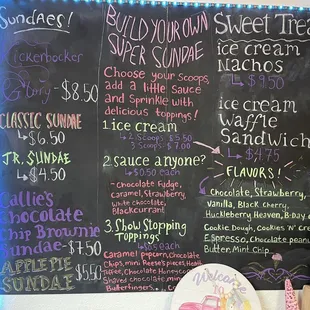 Sundaes!
Knickerbocker
Glory - $8.50
CLASSIC SUNDAE
$6.50
JR. SUNDAE
$4.50
Callie's
Chocolate
Chip Brownie
Sundae - $7.50
APPLE PIE
SUNDAE $6.50
BUILD YOUR OWN
SUPER SUNDAE
Choose your scoops
add a little sauce
and Sprinkle with
delicious toppings!
1. ice cream
2 Scoops $5.50
3 Scoops $7.00
2. sauce anyone?
$0.50 each
- Chocolate Fudge,
Caramel, Strawberry,
white chocolate,
Blackcurrant
3. Show Stopping
Toppings
$0.5 each
Caramel popcorn, Chocolate
Chips, mini Reese's pieces, Heath
Chocolate Honeycomb
Shaved chocolate, mini
Butterfingers
Sweet Trea
ice cream
Nachos
$9.50
ice cream
Waffle
Sandwich
$4.75
FLAVORS!
Chocolate, Strawberry,
Vanilla, Black Cherry,
Huckleberry Heaven, B-Day
Cookie Dough, Cookies 'N' Cre
Espresso, Chocolate peanu
Butter, Mint Chip
Welcome